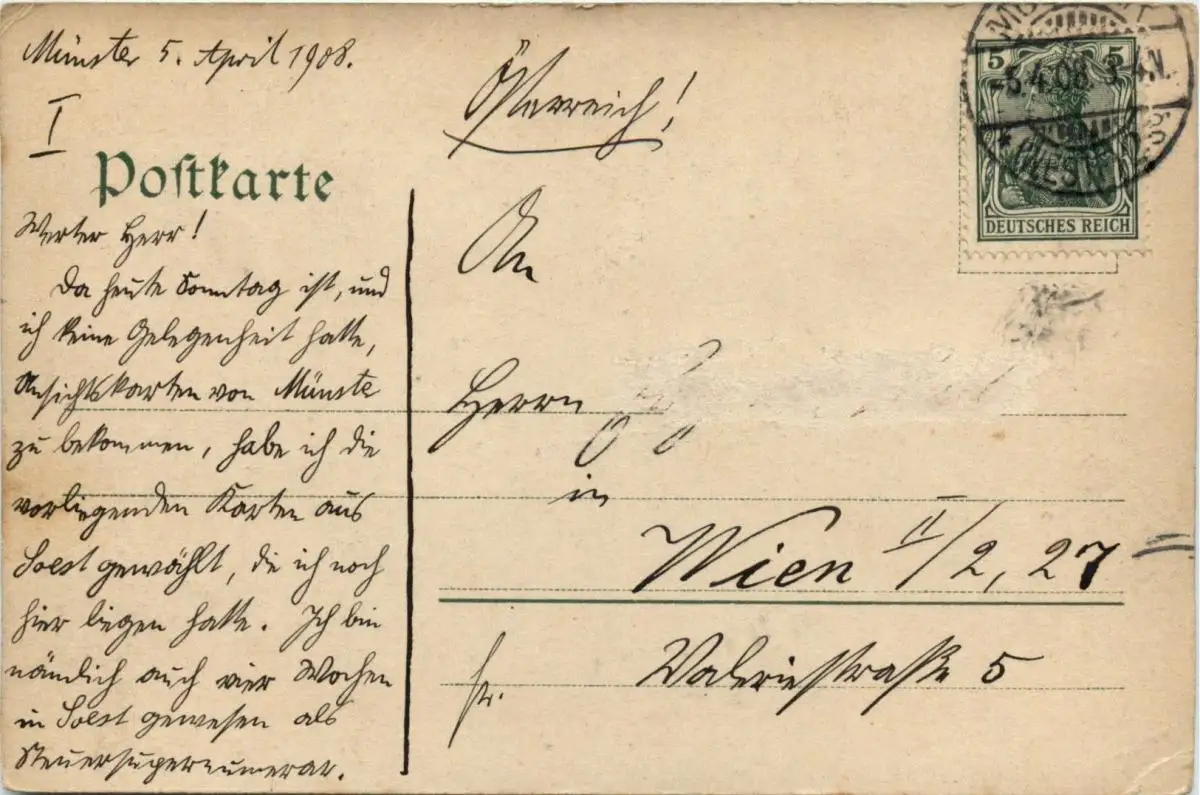 Münster 5. April 1908.
I
Postkarte
Werter Herr!
Da heute Sonntag ist, und
ich keine Gelegenheit hatte,
Ansichtskarten von Münster
zu bekommen, habe ich die
vorliegenden Karten aus
Soest gewählt, die ich noch
hier liegen hatte. Ich bin
nämlich auch vier Wochen
in Soest gewesen als
Steuersupernumerar.
Österreich!
5 5
-5.4.08. 3-4N.
*(WESTF.)
DEUTSCHES REICH
An
Herrn
in
Wien II/2, 27
fr. Valeriestraße 5